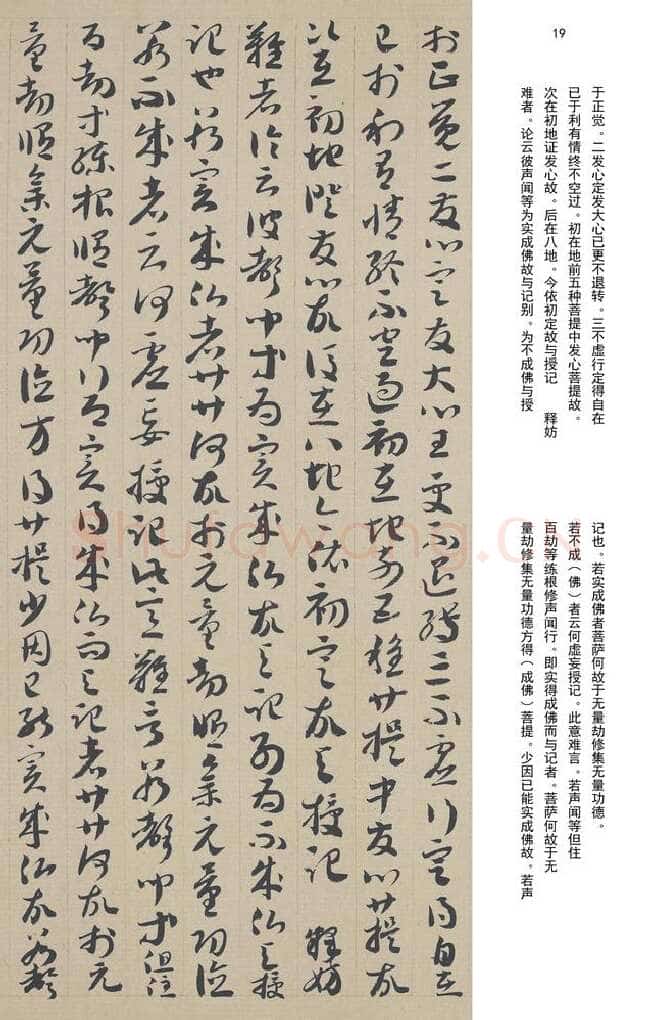 19
于正觉。二发心定发大心已更不退转。三不虚行定得自在
已于利有情终不空过。初在地前五种菩提中发心菩提故。
次在初地证发心故。后在八地。今依初定故与授记　释妨
难者。论云彼声闻等为实成佛故与记别。为不成佛与授
记也。若实成佛者菩萨何故于无量劫修集无量功德。
若不成（佛）者云何虚妄授记。此意难言。若声闻等但住
百劫等练根修声闻行。即实得成佛而与记者。菩萨何故于无
量劫修集无量功德方得（成佛）菩提。少因已能实成佛故。若声
於正覺二發心定發大心已更不退轉三不虛行定得自在
已於利有情終不空過初在地前五種菩提中發心菩提故
次在初地證發心故後在八地今依初定故与授記　釋妨
難者論云彼聲聞等為實成仏故与記別為不成仏与授
記也若實成仏者菩薩何故於无量劫脩集无量功德
若不成者云何虛妄授記此意難言若聲聞等但住
百劫等練根脩聲聞行即實得成仏而与記者菩薩何故於无
量劫脩集无量功德方得菩提少因已能實成仏故若聲
Shufawang.CN